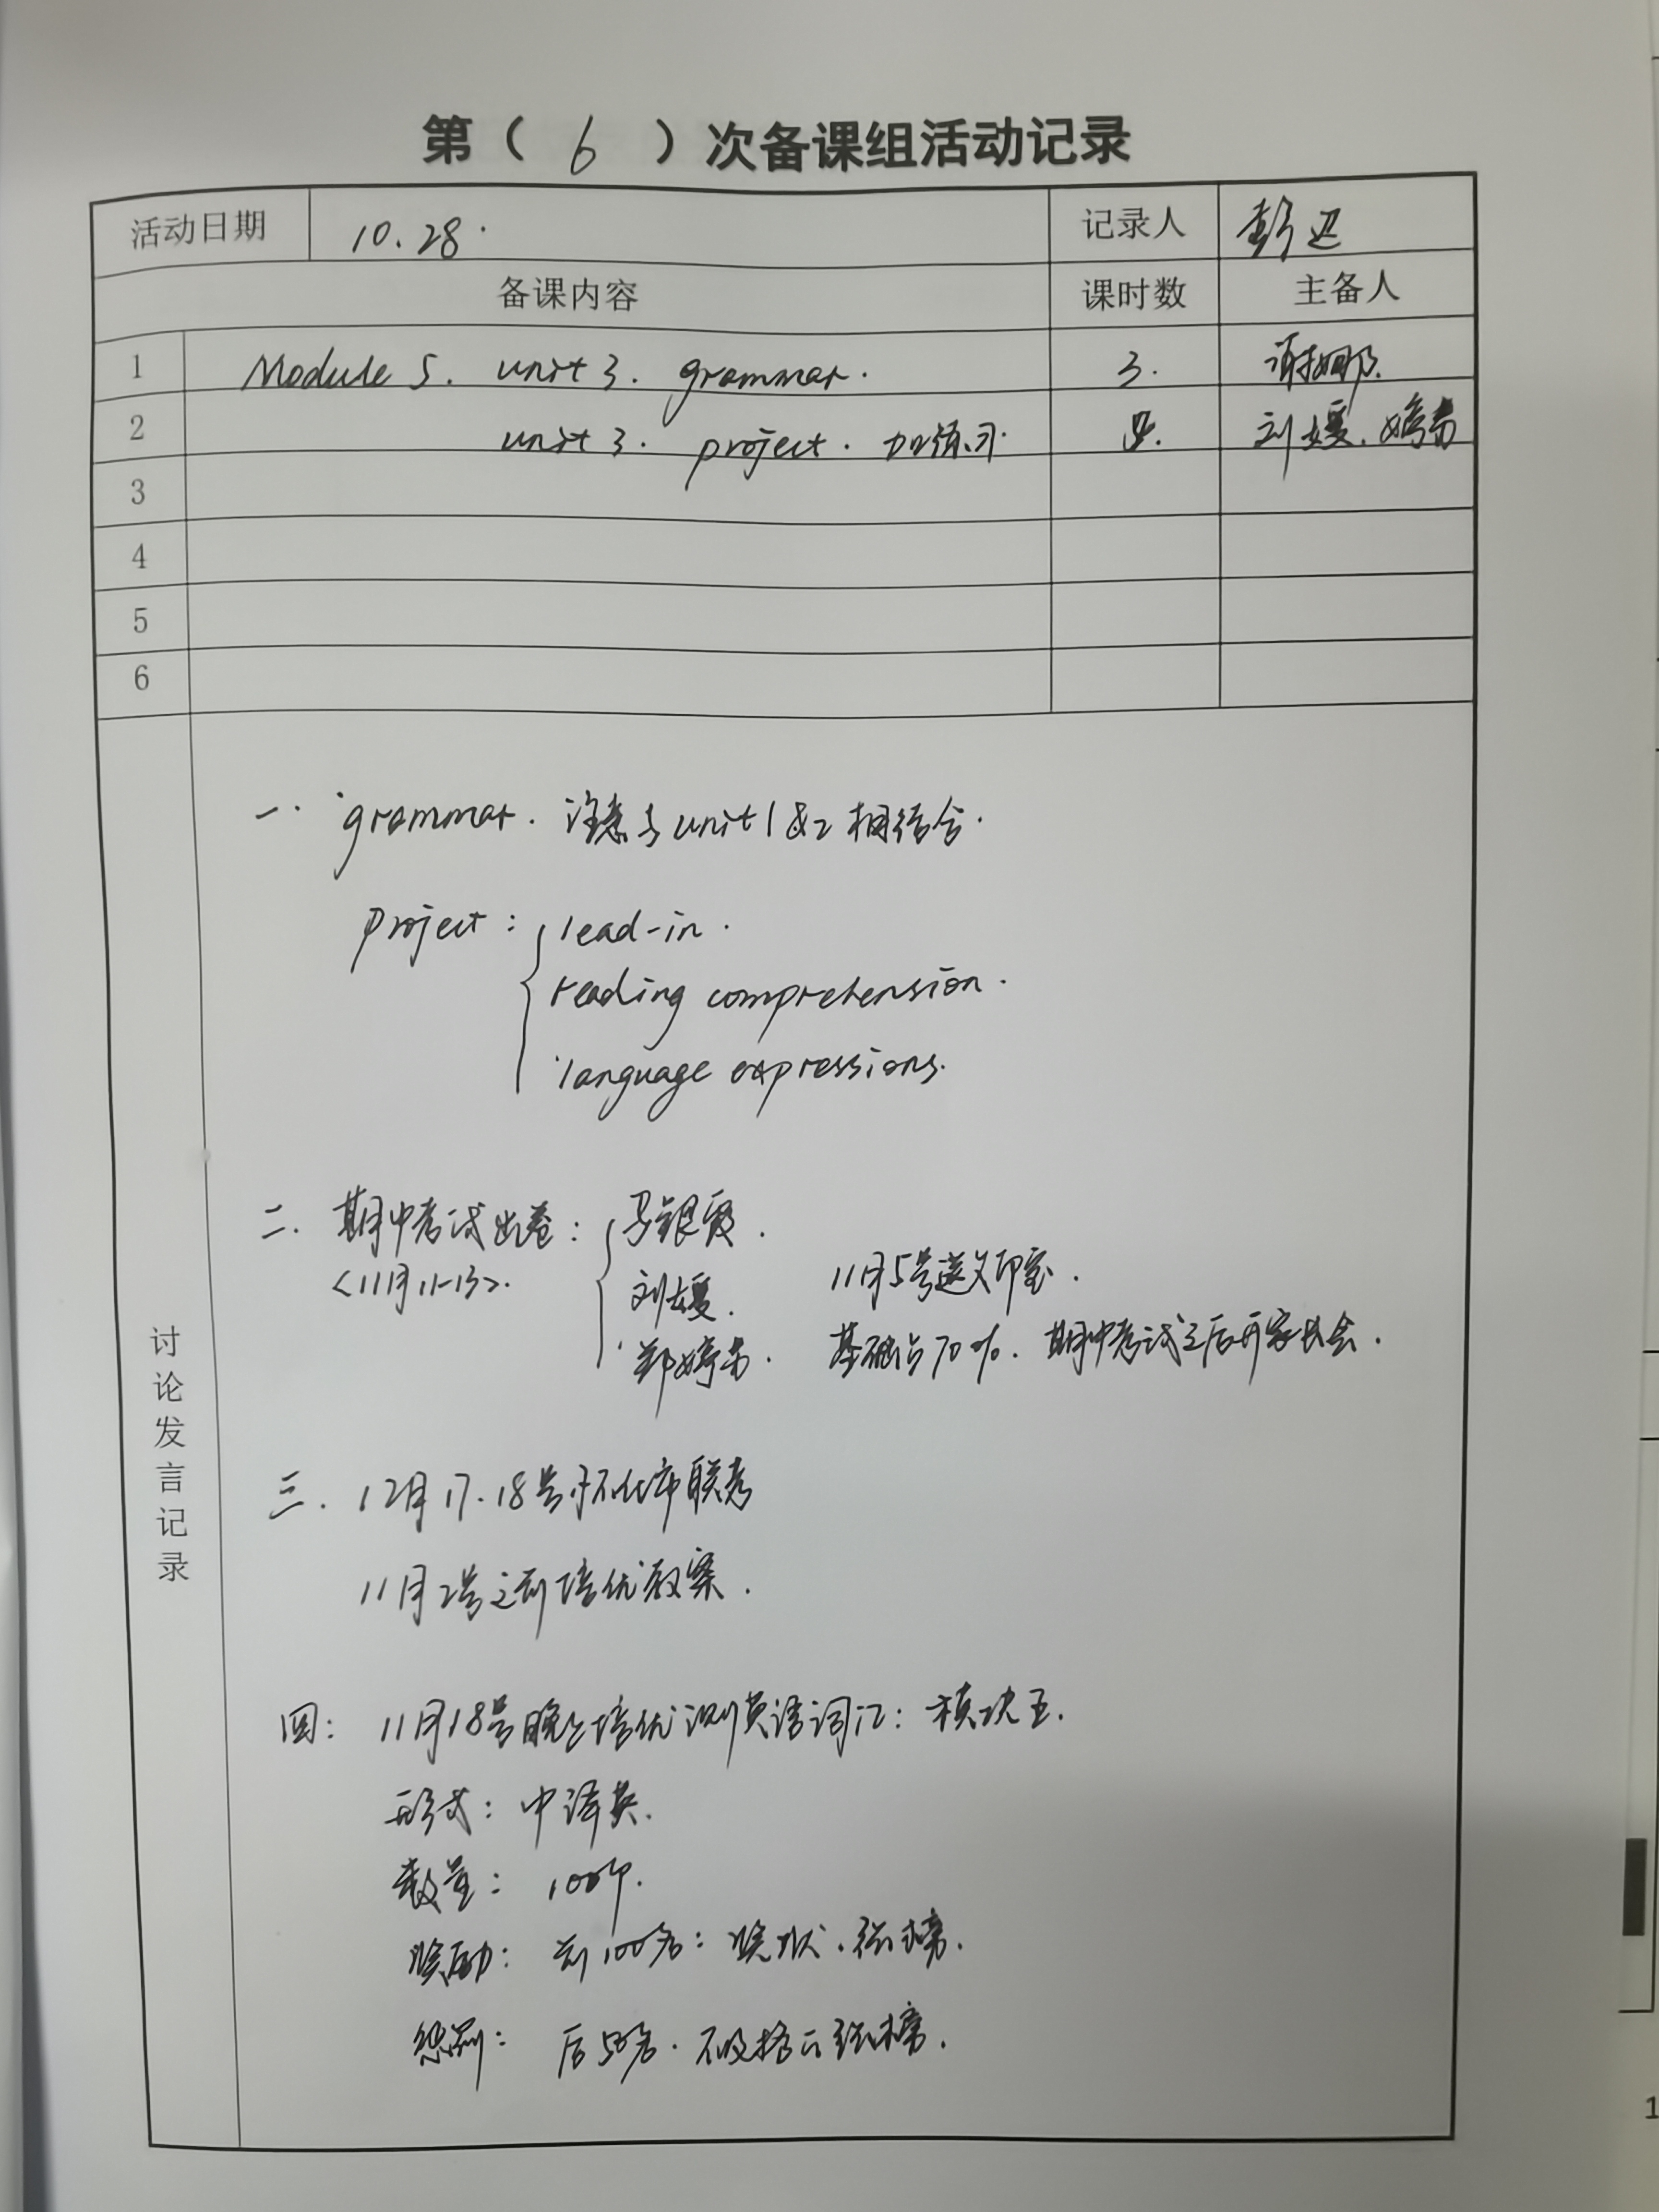 第（ 6 ）次备课组活动记录
活动日期 10.28. 记录人 彭
备课内容 课时数 主备人
1 Module 5. unit 3. grammar. 3. 谢娜.
2 unit 3. project. 加练习. 刘媛. 婷芳
3
4
5
6
讨论发言记录
一. grammar. 注意与unit 1 &2 相结合.
project: lead-in.
reading comprehension.
language expressions.
二. 期中考试出卷: 马银霞.
<11月11-13>. 刘媛. 11月5号送文印室.
郑婷芳. 基础占70%. 期中考试之后开家长会.
三. 12月17.18号怀化市联考
11月2号之前培优教案.
四: 11月18号晚上培优测英语词汇: 模块五.
形式: 中译英.
数量: 100个.
奖励: 前100名: 奖状. 张榜.
惩罚: 后50名. 不及格张榜.
1